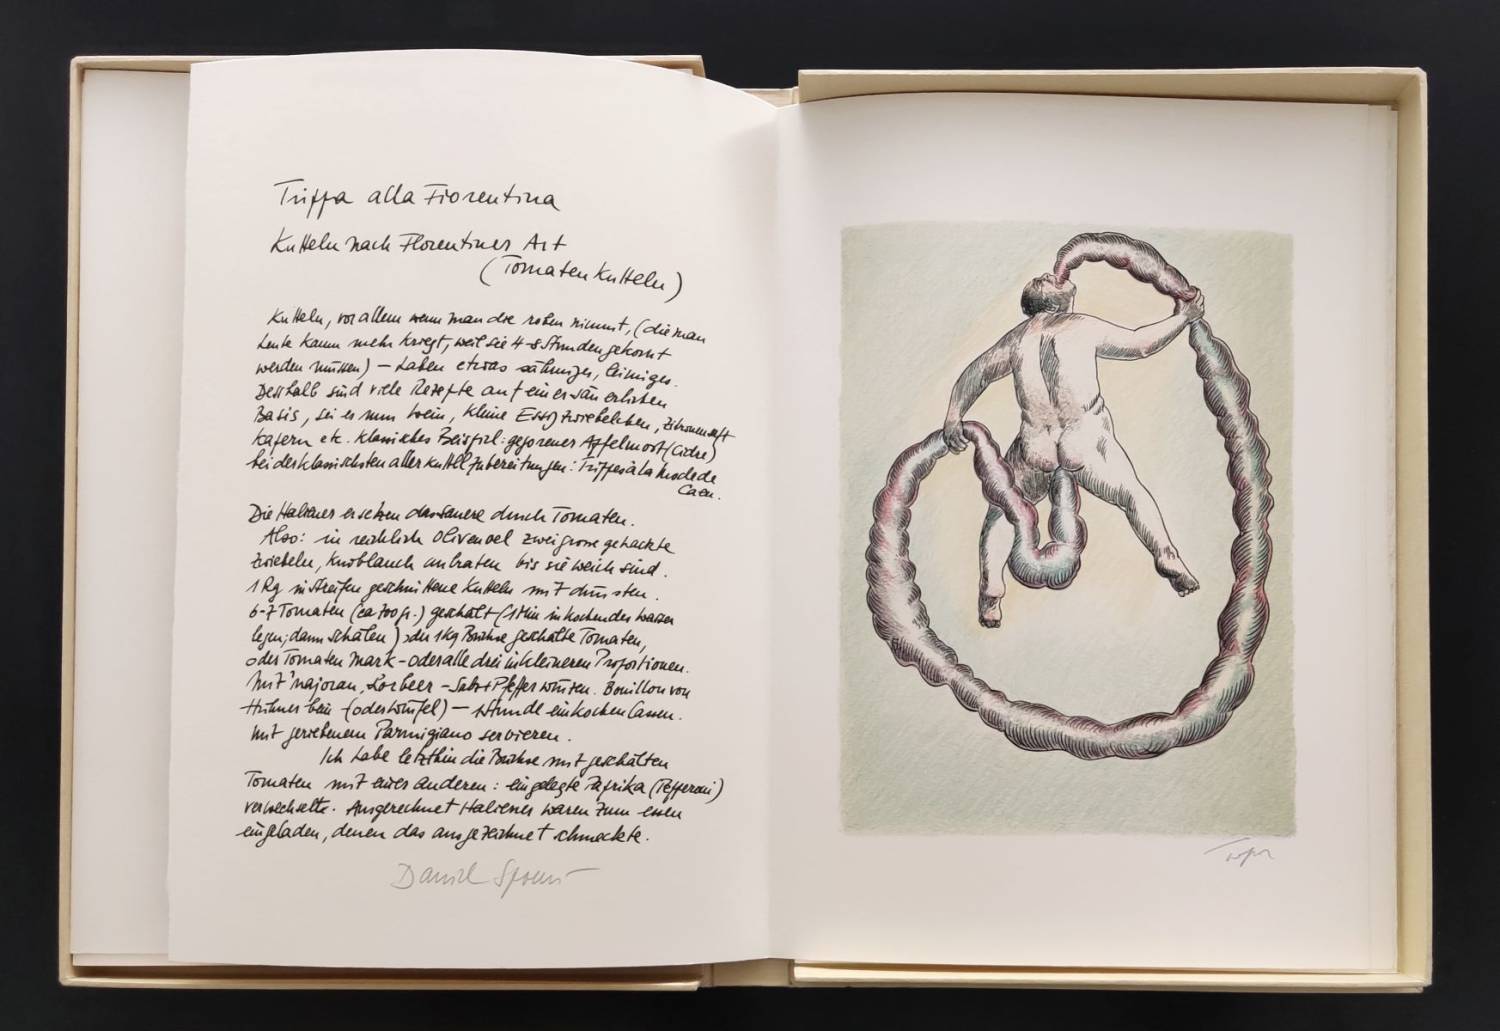 Trippa alla Fiorentina
Kutteln nach Florentiner Art
(Tomaten Kutteln)
Kutteln, vor allem wenn man die rohen nimmt, (die man
heute kaum mehr kriegt, weil sie 4-8 Stunden gekocht
werden müssen) – haben etwas sähmiges, leimiges.
Desshalb sind viele Rezepte auf einer säuerlichen
Basis, sei es nun Wein, kleine Essigzwiebelchen, Zitronensaft
Kapern etc. Klassisches Beispiel: gegorener Apfelmost (Cidre)
bei der klassischsten aller Kuttelzubereitungen: Tripes à la mode de
Caen.
Die Italiener ersetzen das Saure durch Tomaten.
Also: in reichlich Olivenoel zwei grosse gehackte
Zwiebeln, Knoblauch anbraten bis sie weich sind.
1 Kg in Streifen geschnittene Kutteln mit dünsten.
6-7 Tomaten (ca 700 gr.) geschält (1 Min in kochendes Wasser
legen; dann schälen) oder 1 kg Büchse geschälte Tomaten,
oder Tomaten Mark – oder alle drei in kleineren Proportionen.
Mit Majoran, Lorbeer – Salz + Pfeffer würzen. Bouillon von
Hühner bein (oder Würfel) – Stunde einkochen lassen.
Mit geriebenem Parmigiano servieren.
Ich habe letzthin die Büchse mit geschälten
Tomaten mit einer anderen: eingelegte Paprika (Pefferoni)
verwechselt. Ausgerechnet Italiener waren zum essen
eingeladen, denen das ausgezeichnet schmeckte.
Daniel Spoerri
Topor